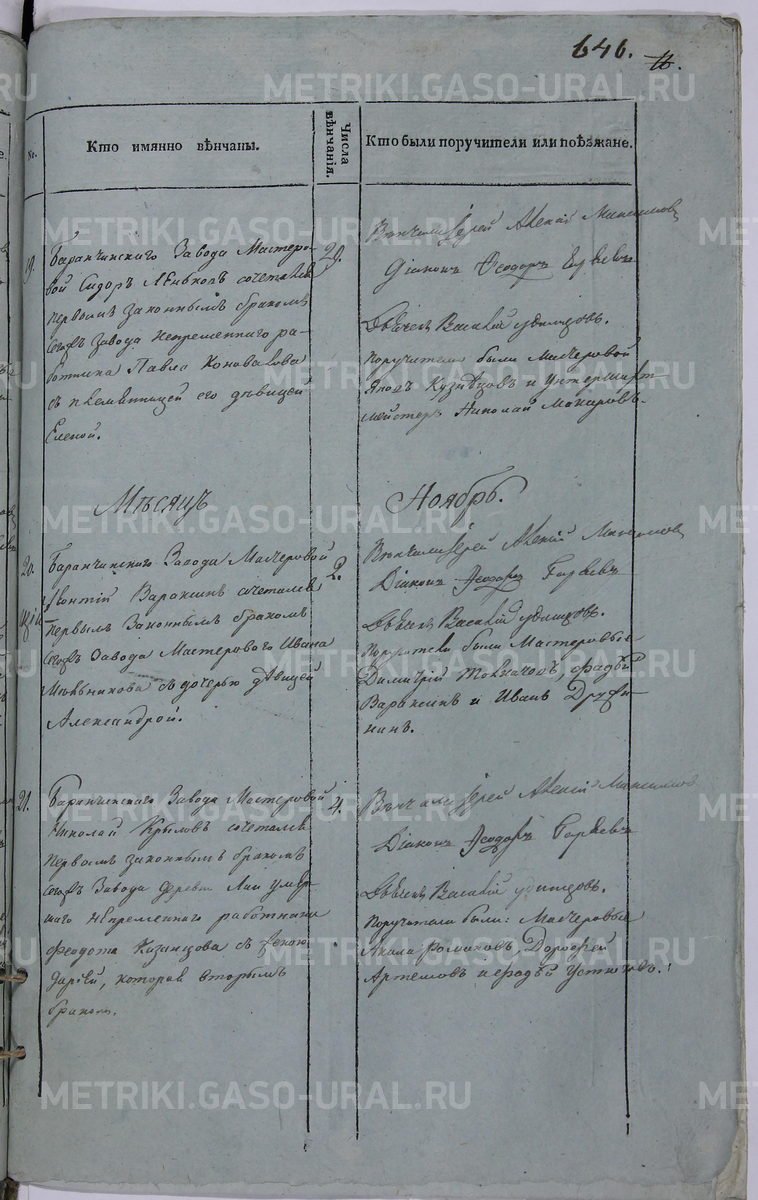 646.
No.
Кто имянно вѣнчаны.
Числа вѣнчанія.
Кто были поручители или поѣзжане.
19.
Баранчинскаго Завода Мастеро-
вой Сидоръ сочетался
первымъ законнымъ бракомъ
Завода непремѣннаго ра-
ботника Павла Коновалова
съ племянницей его дѣвицей
Еленой.
29.
Вѣнчали Іерей Максимовъ
Діаконъ Ѳеодоръ
Дьячекъ Василій Удинцовъ.
Поручители были Мастеровой
Яковъ Кузнѣцовъ и Унтершихт-
мейстеръ Николай Макаровъ.
Мѣсяцъ Ноябрь.
20.
Баранчинскаго Завода Мастеровой
Леонтій Вараксинъ сочетался
первымъ законнымъ бракомъ
Завода Мастероваго Ивана
Мѣльникова съ дочерью дѣвицей
Александрой.
2.
Вѣнчали Іерей Максимовъ
Діаконъ Ѳеодоръ
Дьячекъ Василій Удинцовъ.
Поручители были Мастеровые
Димитрій Толмачовъ, Фадѣй
Вараксинъ и Иванъ Дружи-
нинъ.
21.
Баранчинскаго Завода Мастеровой
Николай Крыловъ сочетался
первымъ законнымъ бракомъ
Завода деревни Лаи умер-
шаго непремѣннаго работника
Феодота Казанцова съ женою
Дарьей, которая вторымъ
бракомъ.
4.
Вѣнчали Іерей Максимовъ
Діаконъ Ѳеодоръ
Дьячекъ Василій Удинцовъ.
Поручители были: Мастеровые
Дорофей
Артемовъ и
METRIKI.GASO-URAL.RU